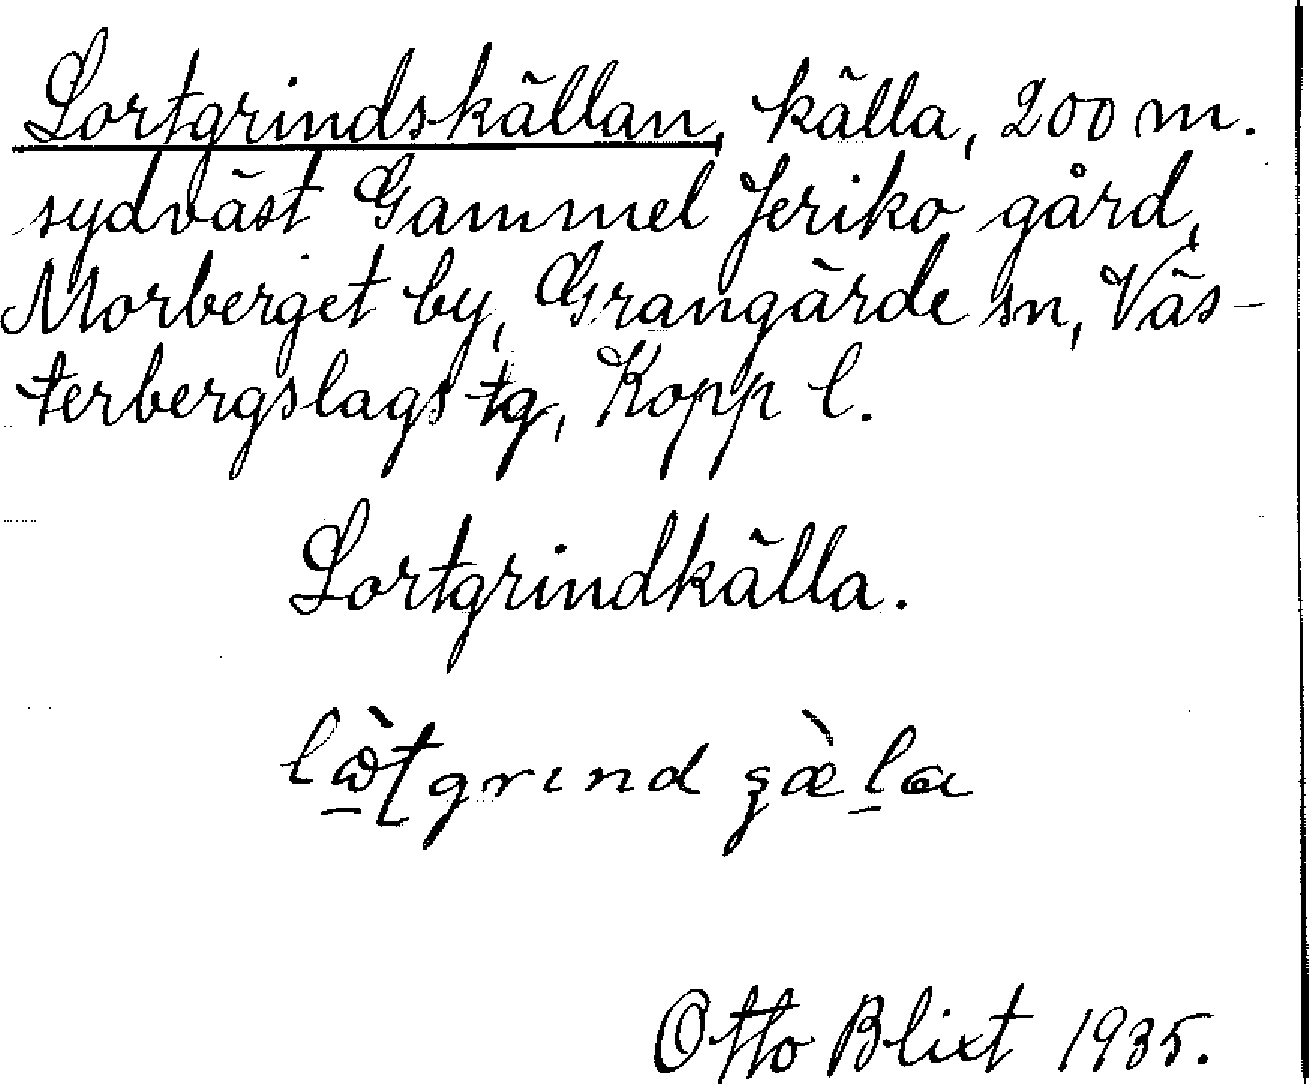 Lortgrindskällan, källa, 200 m.
sydväst Gammel Jeriko gård,
Morberget by, Grangärde sn, Väs-
terbergslags tg, Kopp l.
Lortgrindkälla.
Otto Blixt 1935.